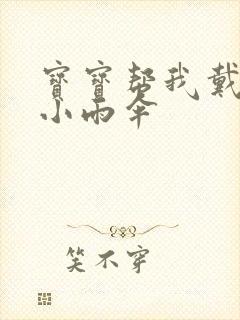 寶寶帮我戴
小雨伞
笑不穿